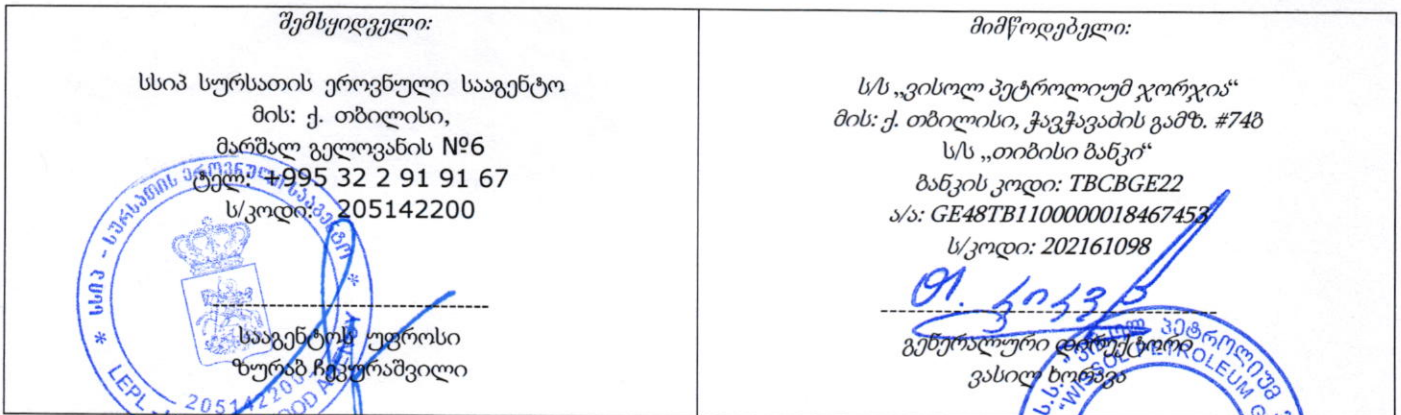 შემსყიდველი:
სსიპ სურსათის ეროვნული სააგენტო
მის: ქ. თბილისი,
მარშალ გელოვანის №6
ტელ: +995 32 2 91 91 67
ს/კოდი: 205142200
სააგენტოს უფროსი
ზურაბ ჩეკურაშვილი
სსიპ - სურსათის ეროვნული სააგენტო
LEPL
205142200
მიმწოდებელი:
ს/ს „ვისოლ პეტროლიუმ ჯორჯია“
მის: ქ. თბილისი, ჭავჭავაძის გამზ. #74ბ
ს/ს „თიბისი ბანკი“
ბანკის კოდი: TBCBGE22
ა/ა: GE48TB1100000018467453
ს/კოდი: 202161098
გენერალური დირექტორი
ვასილ ხორავა
ს.ს. "ვისოლ პეტროლიუმ
"WISSOL PETROLEUM G